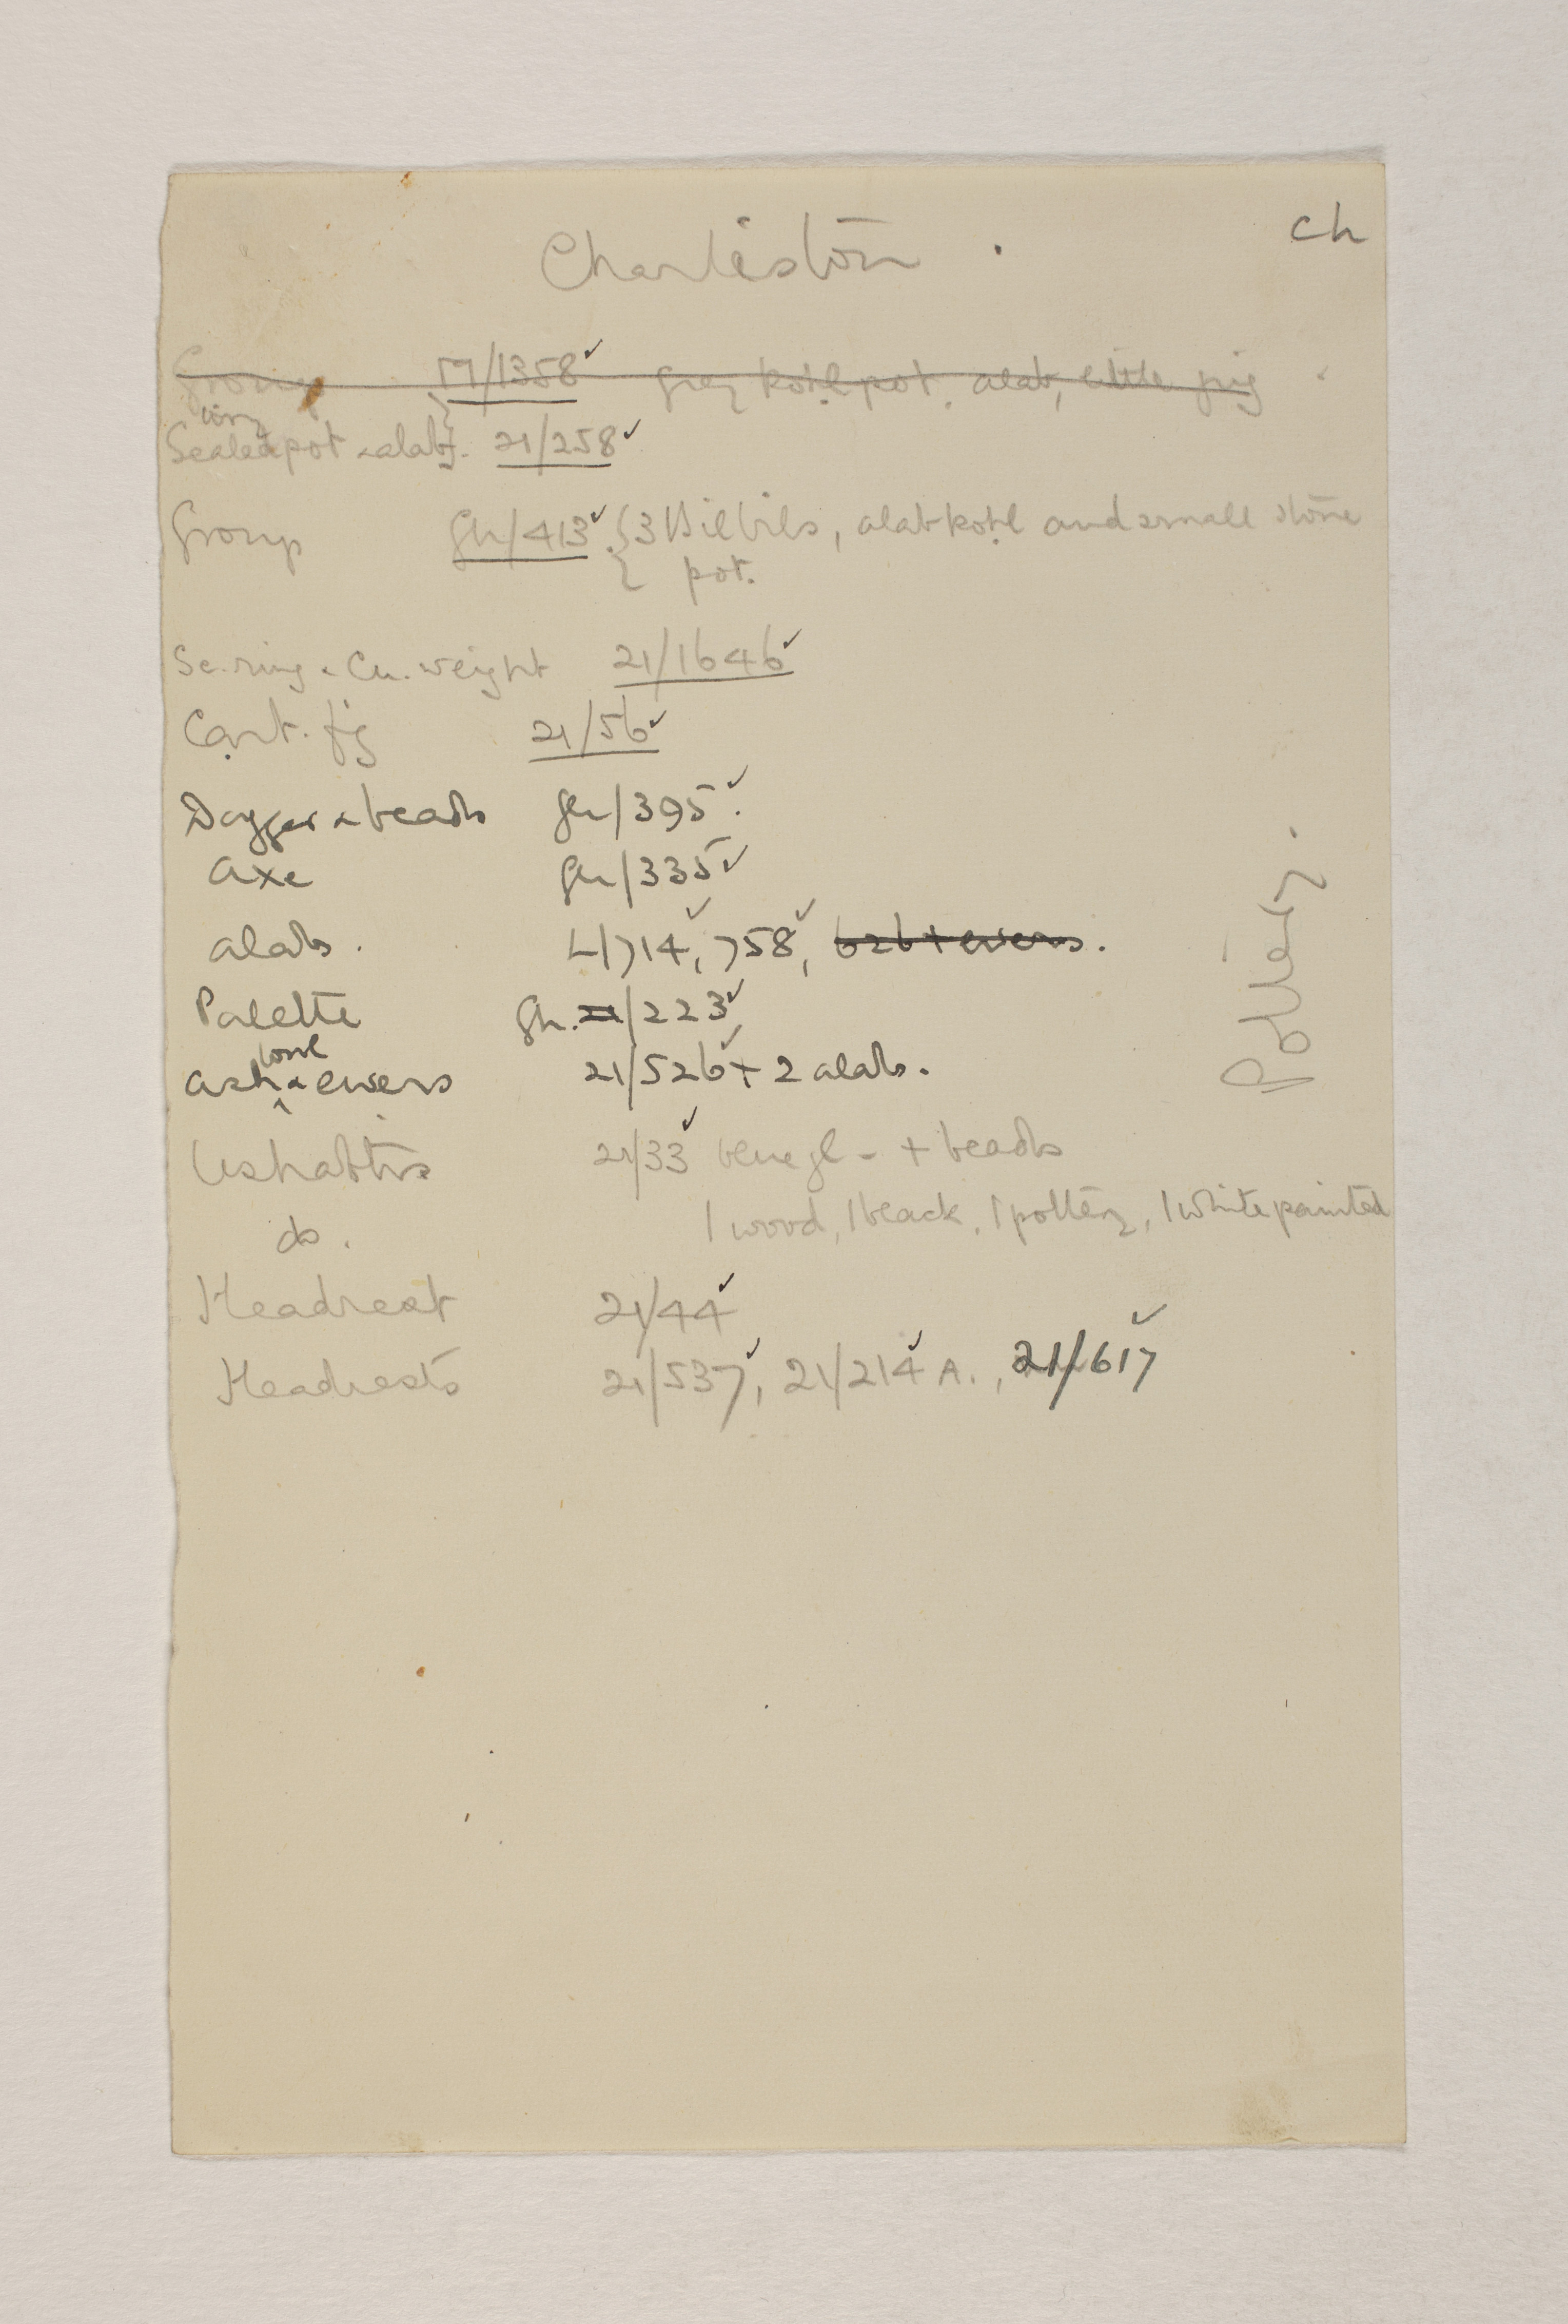 Charleston.
Ch
Group 21/1358 ✓ grey kohl pot, alab, little jug
tiny
Sealed pot & alab. 21/258 ✓
Group Gh/413 ✓ {3 Bilbils, alab kohl and small stone
pot.
Sc. ring & Cu. weight 21/1646 ✓
Cart. fig 21/56 ✓
Dagger & beads Gh/395 ✓.
Axe Gh/335 ✓
alabs. L/714 ✓, 758 ✓, 626 + ewers.
Palette Gh. 21/223 ✓
bowl
ash & ewers 21/526 ✓ + 2 alabs.
Ushabtis 21/33 ✓ blue gl - + beads
do. 1 wood, 1 black, 1 pottery, 1 white painted
Headrest 21/44 ✓
Headrests 21/537 ✓, 21/214 ✓ A., 21/617 ✓
Pottery.